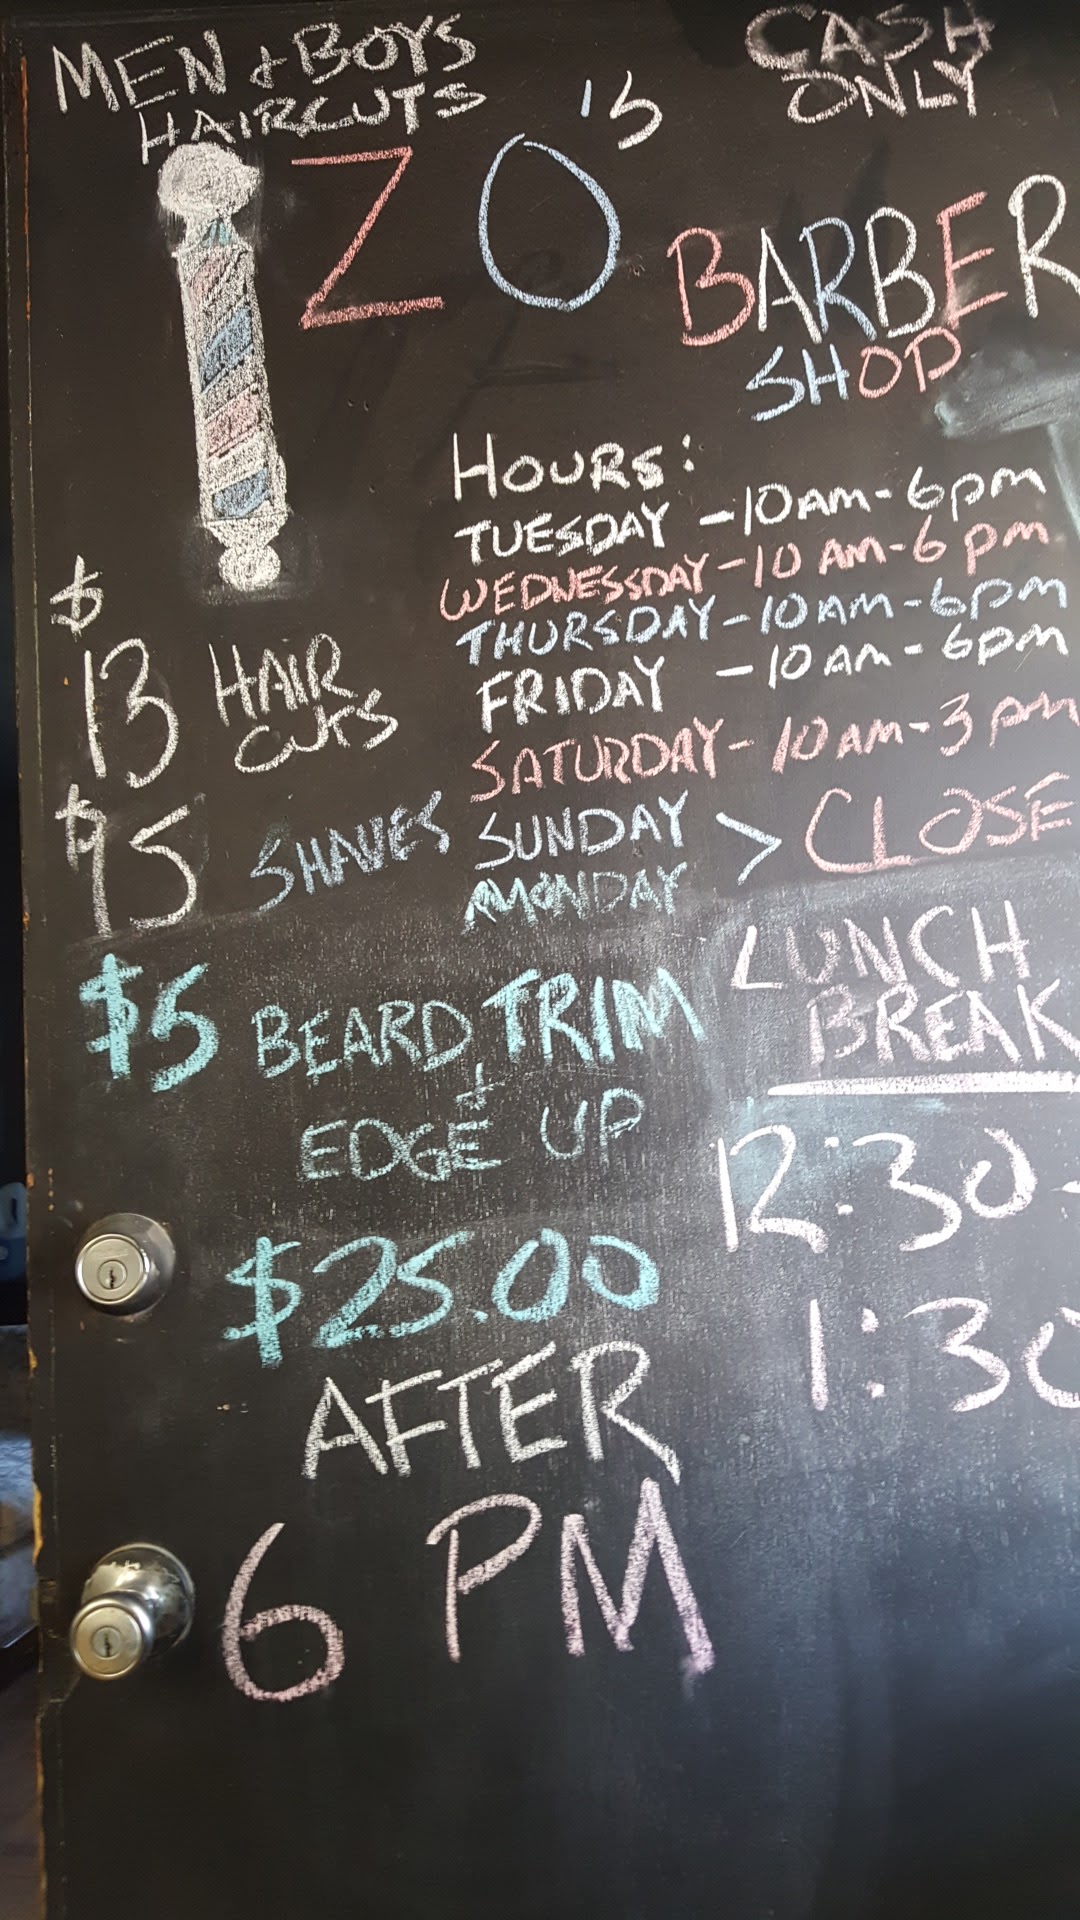 MEN & BOYS
HAIRCUTS
CASH
ONLY
ZO's
BARBER
SHOP
HOURS:
TUESDAY - 10AM - 6pm
WEDNESSDAY - 10 AM - 6 pm
THURSDAY - 10AM - 6pm
FRIDAY - 10 AM - 6pm
SATURDAY - 10 AM - 3 pm
SUNDAY
MONDAY > CLOSE
$
13 HAIR
CUTS
$15 SHAVES
$5 BEARD TRIM
+
EDGE UP
$25.00
AFTER
6 PM
LUNCH
BREAK
12:30 -
1:30